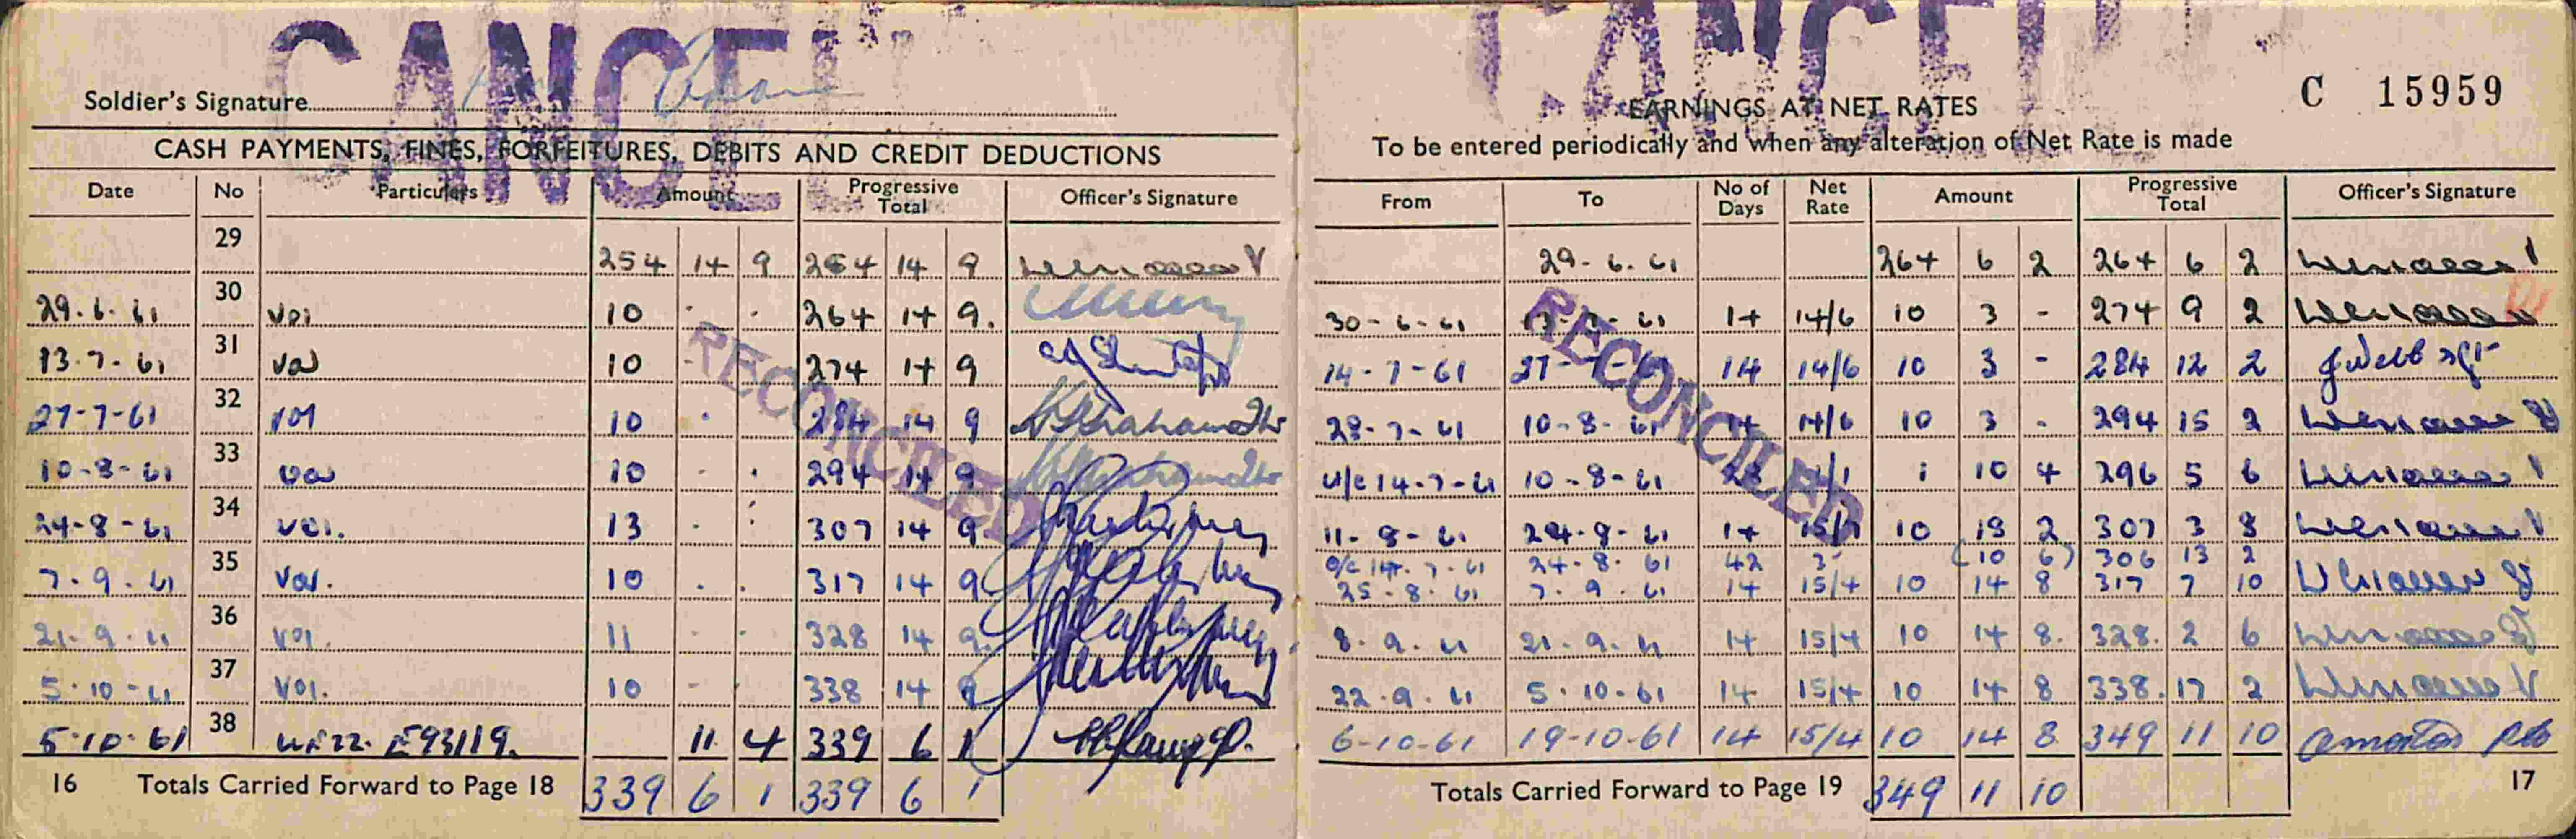 CANCEL
Soldier's Signature
CASH PAYMENTS, FINES, FORFEITURES, DEBITS AND CREDIT DEDUCTIONS
Date No Particulars Amount Progressive Total Officer's Signature
29 254 14 9 254 14 9
29.6.61 30 Vol 10 . . 264 14 9.
13.7-61 31 Vol 10 - 274 14 9
27-7-61 32 Vol 10 . 284 14 9
10-8-61 33 Vol 10 - . 294 14 9
24-8-61 34 Vol. 13 - : 307 14 9
7.9.61 35 Vol. 10 . . 317 14 9
21.9.61 36 Vol. 11 - - 328 14 9.
5.10-61 37 Vol. 10 - - 338 14 9
5.10.61 38 E93119. 11 4 339 6 1
RECONCILED
16 Totals Carried Forward to Page 18 339 6 1 339 6 1
CANCEL
C 15959
EARNINGS AT NET RATES
To be entered periodically and when any alteration of Net Rate is made
From To No of Days Net Rate Amount Progressive Total Officer's Signature
29.6.61 264 6 2 264 6 2
30-6-61 13-7-61 14 14/6 10 3 - 274 9 2
14-7-61 27-7-61 14 14/6 10 3 - 284 12 2 J Webb Sgt
28-7-61 10-8-61 14 14/6 10 3 - 294 15 2
U/C 14-7-61 10-8-61 28 1/1 1 10 4 296 5 6
11-8-61 24-8-61 14 15/7 10 18 2 307 3 8
O/C 14.7.61 24.8.61 42 3- (10 6) 306 13 2
25.8.61 7.9.61 14 15/4 10 14 8 317 7 10
8.9.61 21.9.61 14 15/4 10 14 8. 328. 2 6
22.9.61 5.10.61 14 15/4 10 14 8 338. 17 2
6-10-61 19-10-61 14 15/4 10 14 8 349 11 10
RECONCILED
Totals Carried Forward to Page 19 349 11 10
17